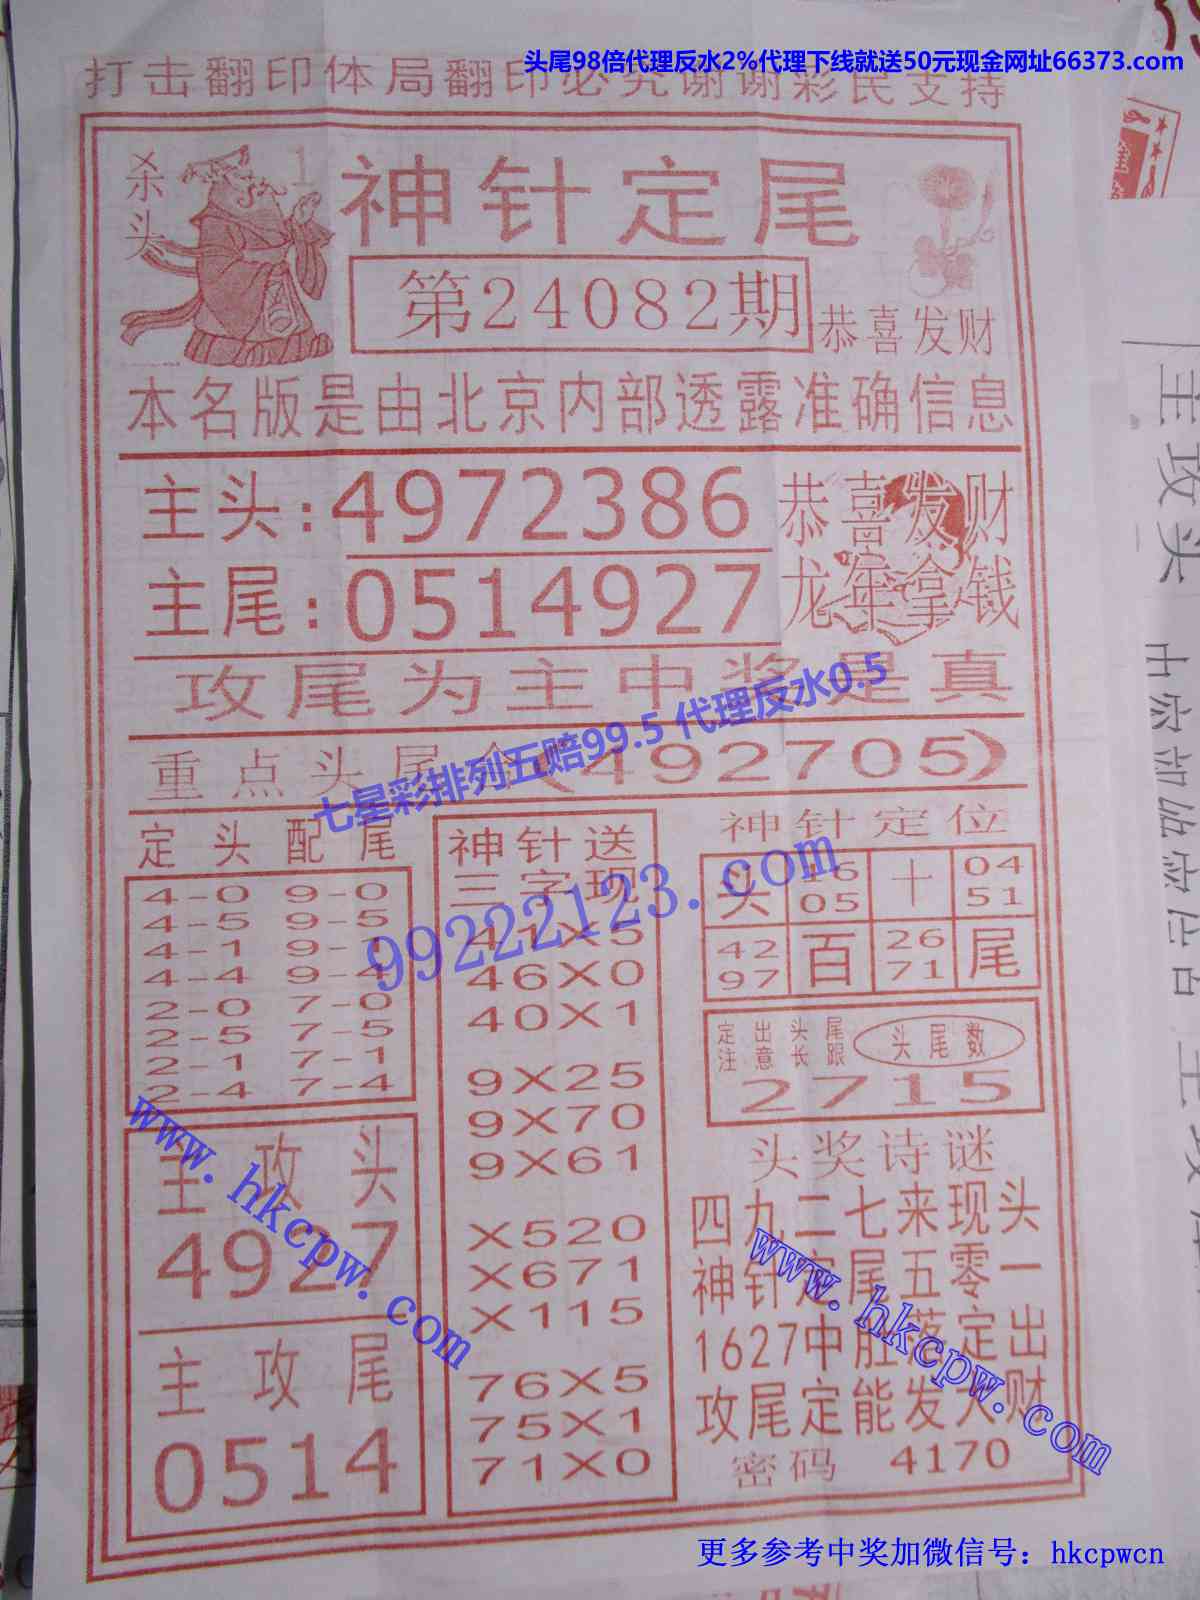 头尾98倍代理反水2%代理下线就送50元现金网址66373.com
打击翻印体局翻印必究谢谢彩民支持
杀头
1
神针定尾
第24082期
恭喜发财
本名版是由北京内部透露准确信息
主头:4972386
恭喜发财
主尾:0514927
龙年拿钱
攻尾为主中奖是真
七星彩排列五赔99.5 代理反水0.5
重点头尾 (492705)
定头配尾
4-0 9-0
4-5 9-5
4-1 9-1
4-4 9-4
2-0 7-0
2-5 7-5
2-1 7-1
2-4 7-4
主攻头
4927
主攻尾
0514
神针送
三字现
41X5
46X0
40X1
9X25
9X70
9X61
X520
X671
X115
76X5
75X1
71X0
99222123.com
神针定位
头 16 十 04
05 51
42 百 26 尾
97 71
定出头尾
注意长跟
头尾数
2715
头奖诗谜
四九二七来现头
神针定尾五零一
1627中肚落定出
攻尾定能发大财
密码 4170
www.hkcpw.com
www.hkcpw.com
更多参考中奖加微信号：hkcpwcn
主攻头